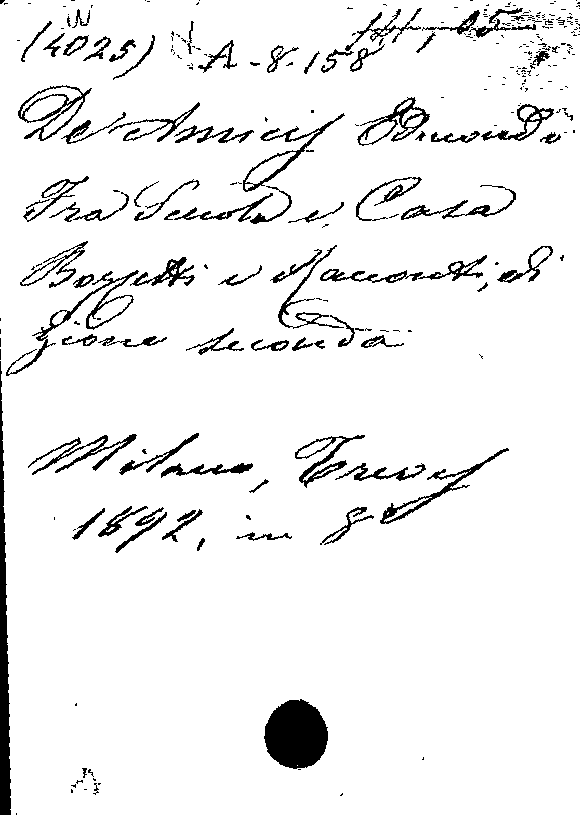 (4025) A-8-158
De Amicis Edmondo
Fra Scuola e Casa
Bozzetti e Racconti, di
zione seconda
Milano, Treves
1892, in 8º